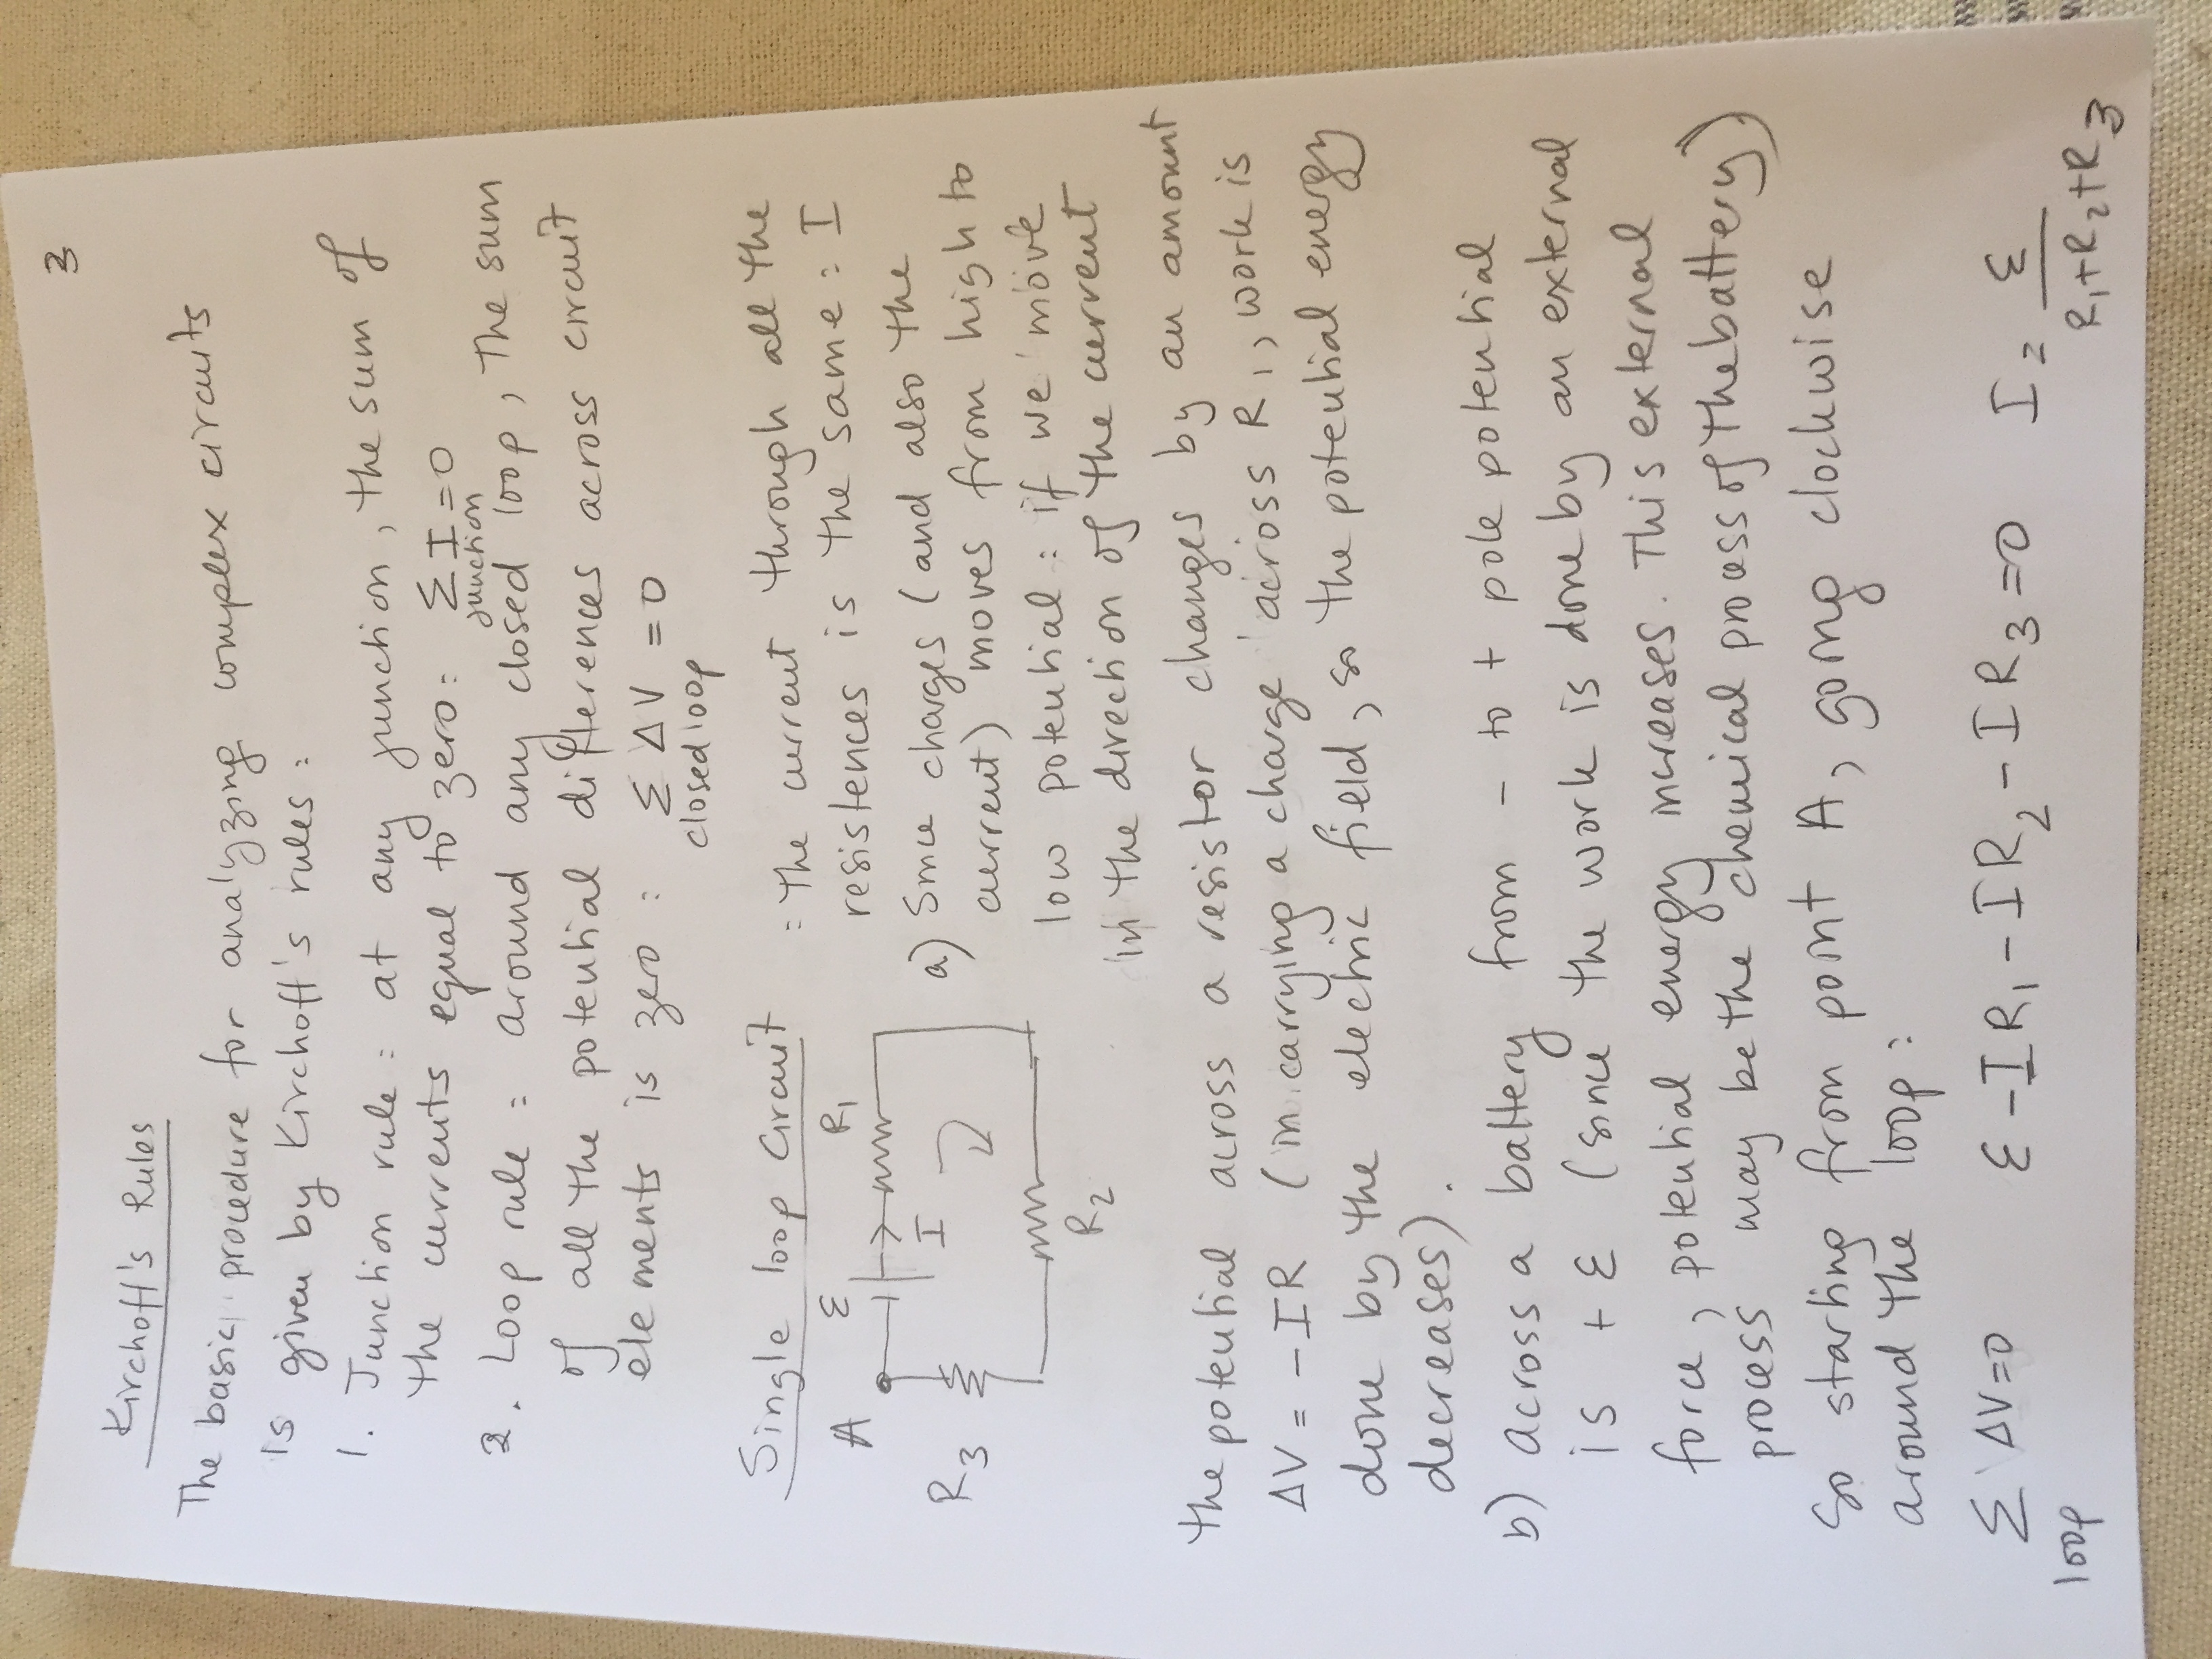 3
Kirchoff's Rules
The basic procedure for analyzing complex circuits
is given by Kirchoff's rules:
1. Junction rule: at any junction, the sum of
the currents equal to zero: Σ I = 0
junction
2. Loop rule: around any closed loop, the sum
of all the potential differences across circuit
elements is zero: Σ ΔV = 0
closed loop
Single loop Circuit
A ε R₁
I
R₃
R₂
: The current through all the
resistences is the same: I
a) Since charges (and also the
current) moves from high to
low potential: if we move
in the direction of the current
the potential across a resistor changes by an amount
ΔV = -IR (in carrying a charge across R₁, work is
done by the electric field, so the potential energy
decreases).
b) across a battery from - to + pole potential
is + ε (since the work is done by an external
force, potential energy increases. This external
process may be the chemical process of the battery)
So starting from point A, going clockwise
around the loop:
Σ ΔV=0 ε - IR₁ - IR₂ - IR₃ = 0 I = ε
loop R₁+R₂+R₃